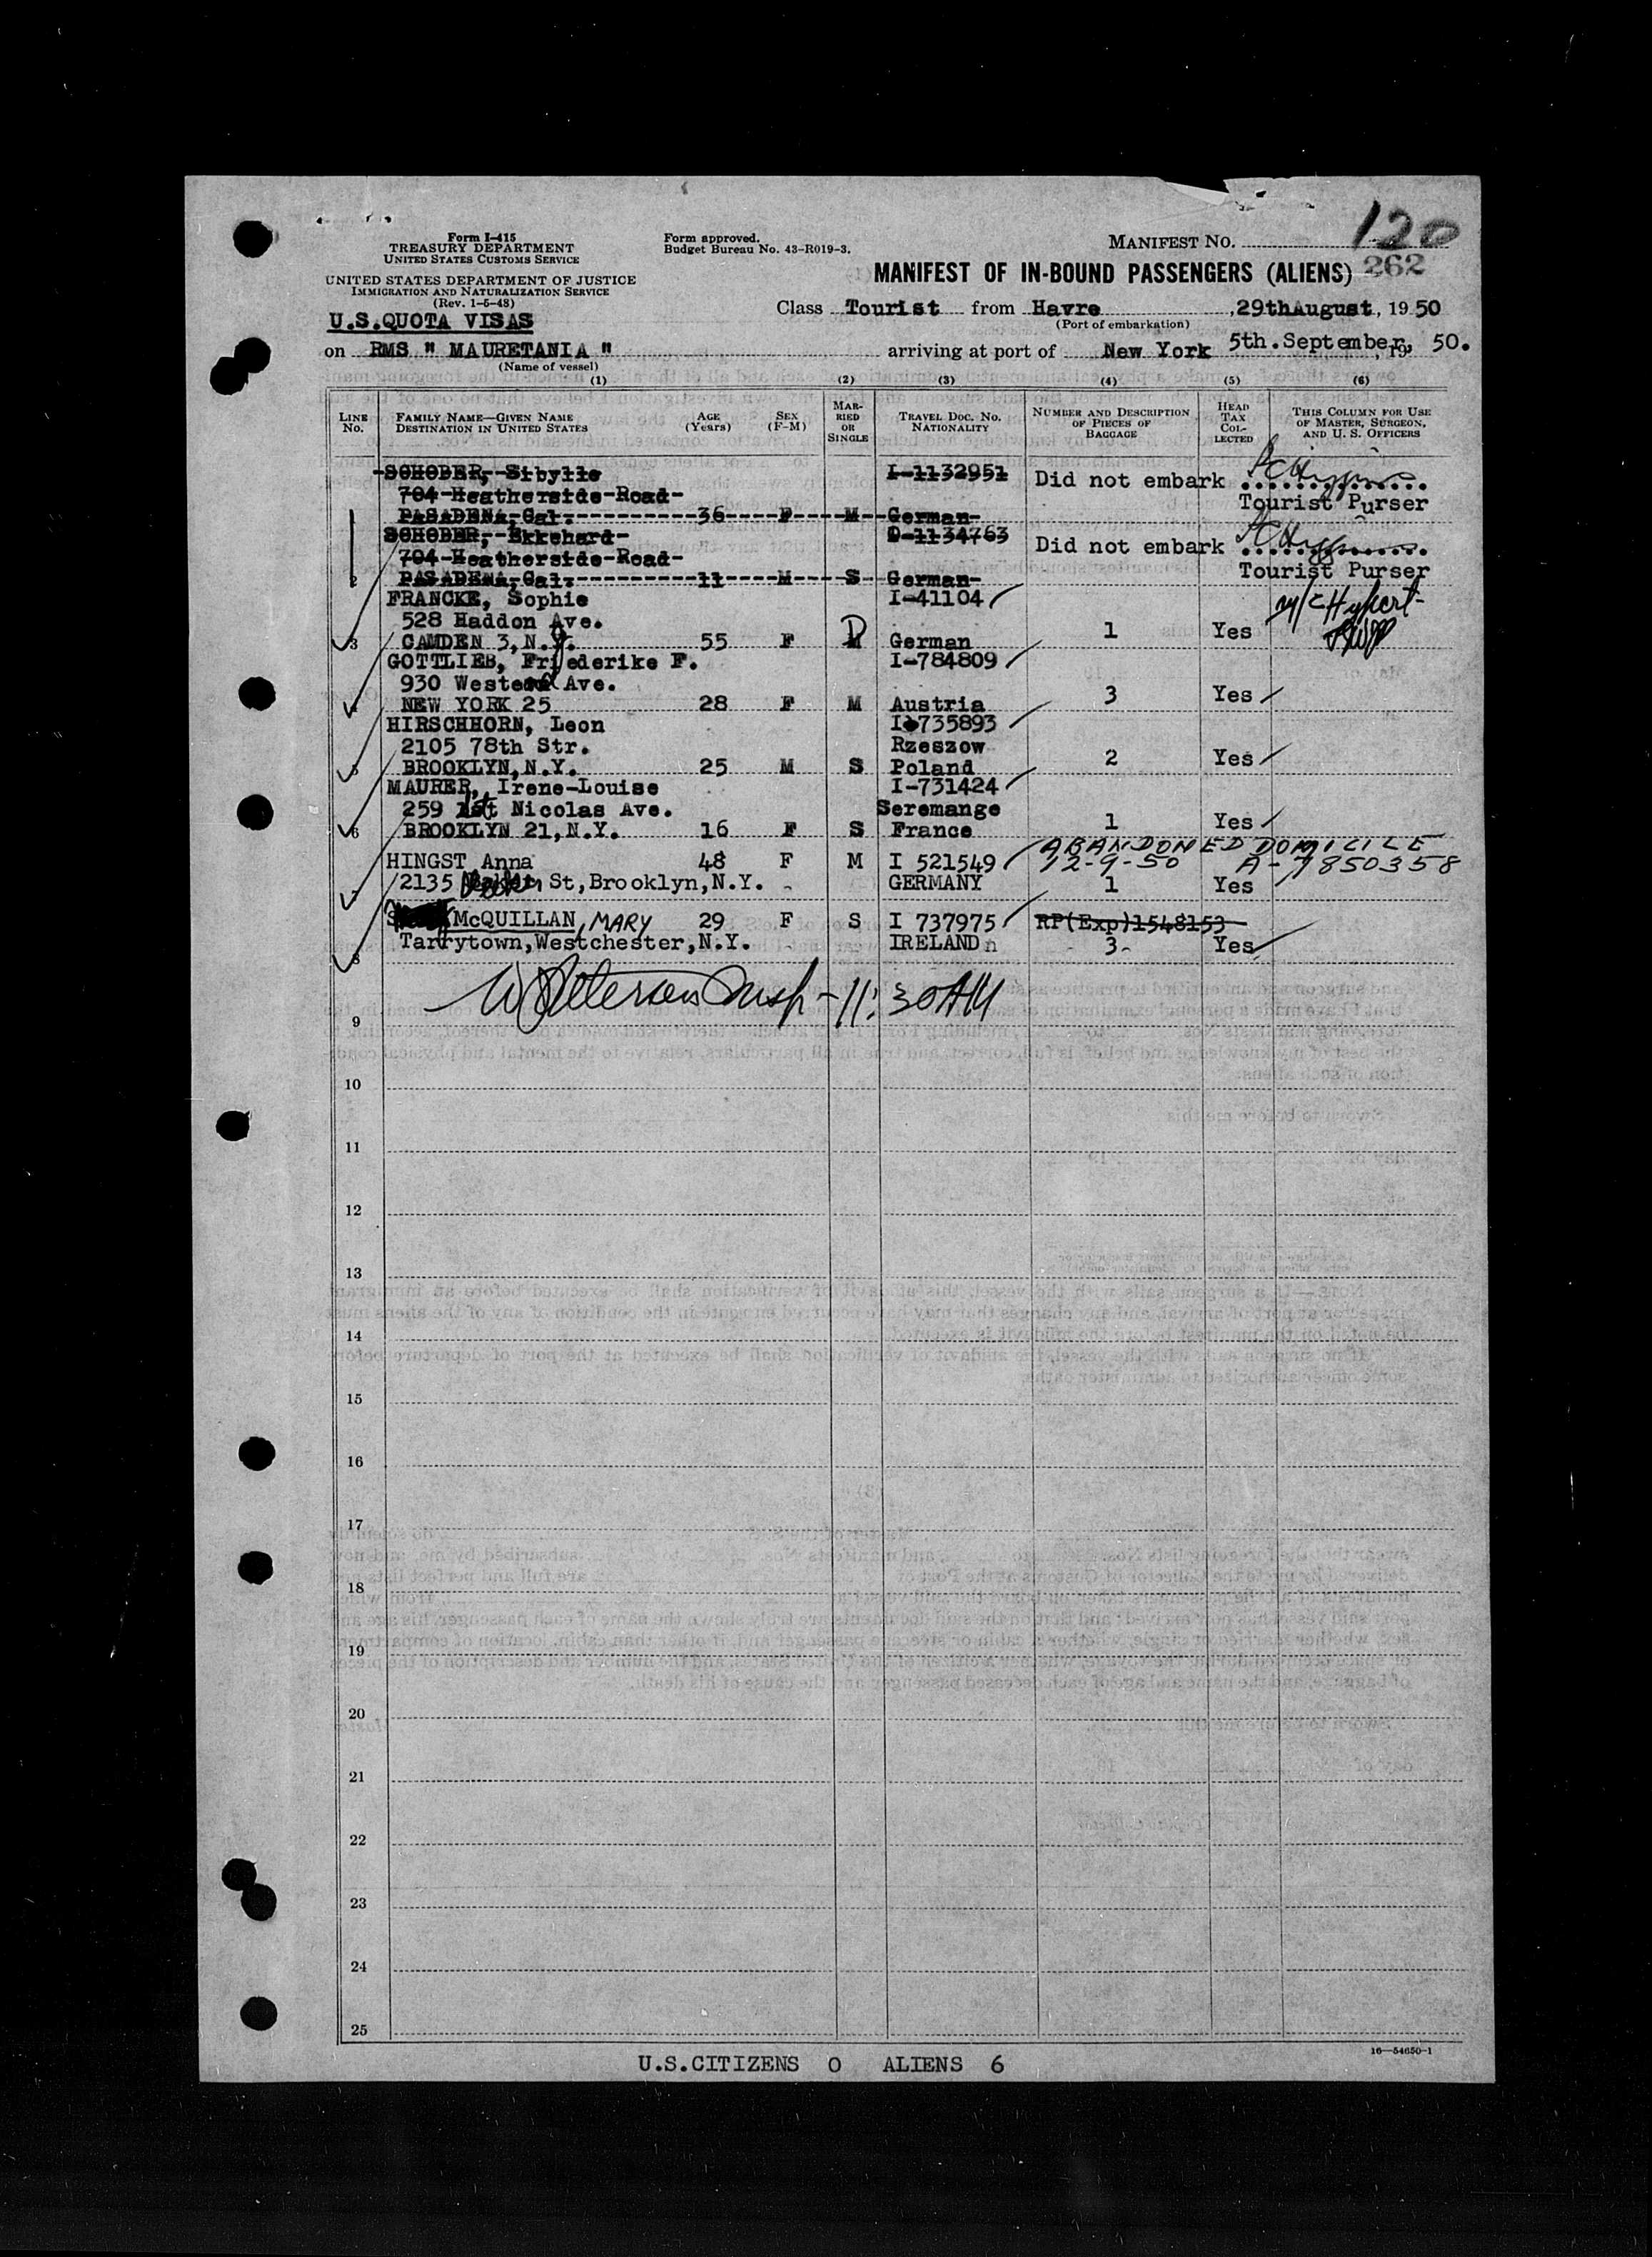 Form I-415
TREASURY DEPARTMENT
UNITED STATES CUSTOMS SERVICE
UNITED STATES DEPARTMENT OF JUSTICE
IMMIGRATION AND NATURALIZATION SERVICE
(Rev. 1-5-48)
Form approved.
Budget Bureau No. 43-R019-3.
MANIFEST NO. 120
262
MANIFEST OF IN-BOUND PASSENGERS (ALIENS)
Class Tourist from Havre, 29thAugust, 1950
(Port of embarkation)
U.S.QUOTA VISAS
on RMS " MAURETANIA " arriving at port of New York 5th.September, 19 50.
(Name of vessel)
(1) (2) (3) (4) (5) (6)
LINE No. FAMILY NAME—GIVEN NAME DESTINATION IN UNITED STATES AGE (Years) SEX (F-M) MARRIED OR SINGLE TRAVEL DOC. NO. NATIONALITY NUMBER AND DESCRIPTION OF PIECES OF BAGGAGE HEAD TAX COLLECTED THIS COLUMN FOR USE OF MASTER, SURGEON, AND U. S. OFFICERS
SCHOBER, Sibylle I-1132951 Did not embark
704 Heatherside Road Tourist Purser
1 PASADENA, Cal. 36 F M German
SCHOBER, Ekkehard D-1134763 Did not embark
704 Heatherside Road
2 PASADENA, Cal. 11 M S German Tourist Purser
FRANCKE, Sophie I-41104
528 Haddon Ave.
3 CAMDEN 3, N.J. 55 F D German 1 Yes
GOTTLIEB, Friederike F. I-784809
930 Westend Ave.
4 NEW YORK 25 28 F M Austria 3 Yes
HIRSCHHORN, Leon I-735893
2105 78th Str. Rzeszow
5 BROOKLYN, N.Y. 25 M S Poland 2 Yes
MAURER, Irene-Louise I-731424
259 St Nicolas Ave. Seremange
6 BROOKLYN 21, N.Y. 16 F S France 1 Yes
ABANDONED DOMICILE
HINGST Anna 48 F M I 521549 12-9-50 A-7850358
7 2135 St, Brooklyn, N.Y. GERMANY 1 Yes
McQUILLAN, MARY 29 F S I 737975 RP(Exp)1548153
8 Tarrytown, Westchester, N.Y. IRELAND 3 Yes
W Peterson Insp - 11:30AM
9
10
11
12
13
14
15
16
17
18
19
20
21
22
23
24
25
16—54650-1
U.S.CITIZENS 0 ALIENS 6